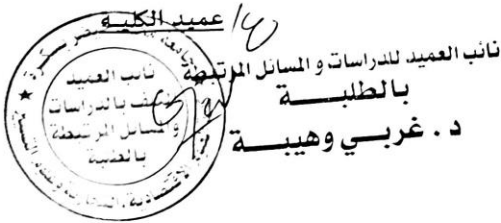 ع/ عميد الكلية
نائب العميد للدراسات و المسائل المرتبطة
بالطلبة
د. غربي وهيبة
نائب العميد
بالدراسات
والمسائل المرتبطة
بالطلبة